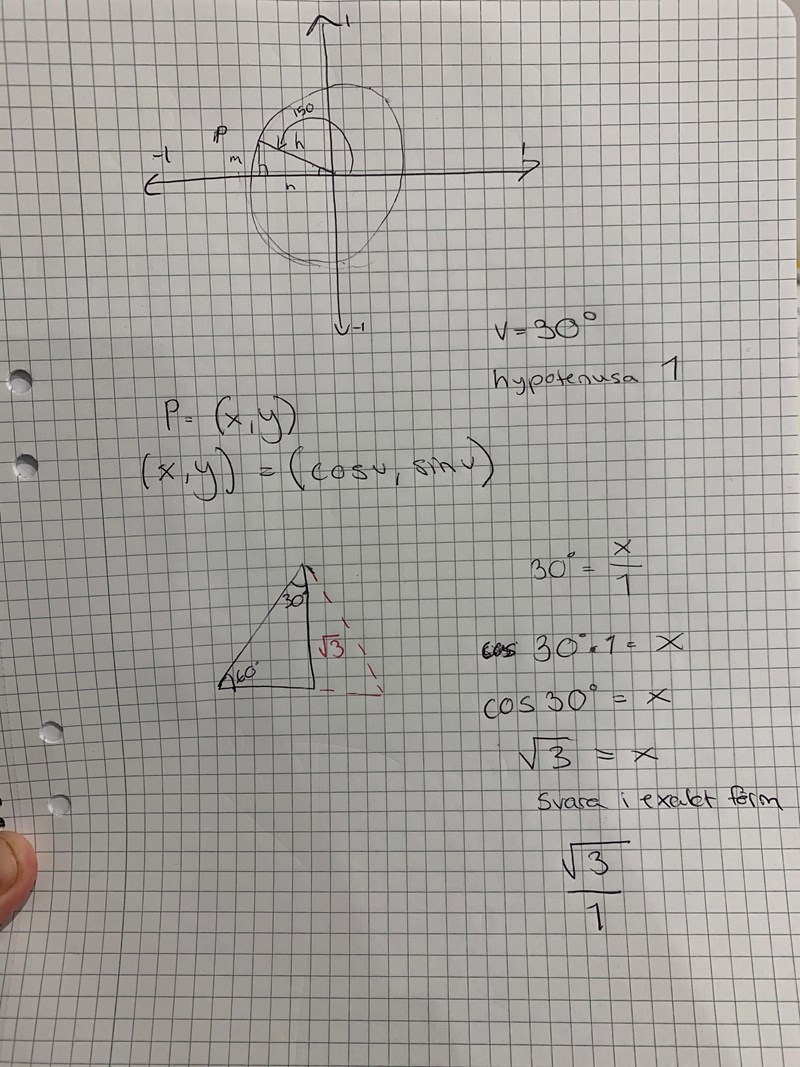 1
150
P
h
-1
m
1
n
-1
v=30°
hypotenusa 1
P= (x,y)
(x,y) = (cosv, sinv)
30° = x/1
30°
√3
60°
cos 30°·1 = x
cos 30° = x
√3 = x
Svara i exakt form
√3/1